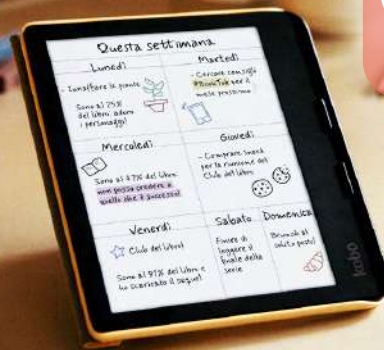 Questa settimana
Lunedì
- Innaffiare le piante
Sono al 25%
del libro: adoro
i personaggi!
Martedì
- Cercare consigli
#BookTok per il
mese prossimo
Mercoledì
Sono al 47% del libro:
non posso credere a
quello che è successo!
Giovedì
- Comprare snack
per la riunione del
Club del libro!
Venerdì
Club del libro!
Sono al 91% del libro e
ho scaricato il sequel!
Sabato
Finire di
leggere il
finale della
serie
Domenica
Brunch al
solito posto!
kobo